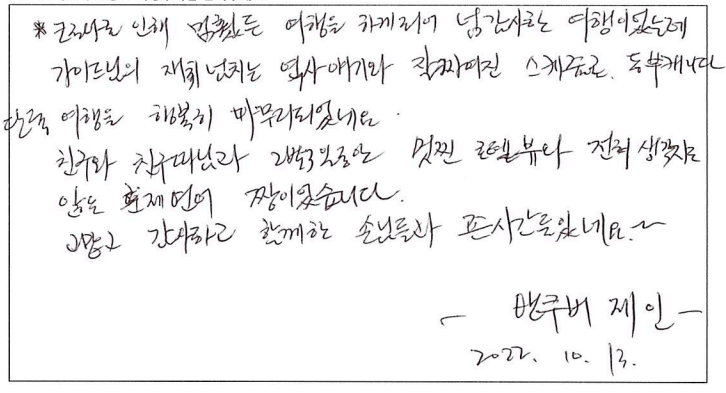 * 코로나로 인해 멈췄든 여행을 하게되어 넘 감사한 여행이었는데
가이드님의 재치넘치는 역사 얘기와 잘짜여진 스케쥴로 동부캐나다
단풍 여행을 행복히 마무리되었네요.
친구와 친구따님과 2박3일동안 멋찐 호텔뷰와 전혀 생각지도
않은 짱이었습니다.
고맙고 감사하고 함께한 손님들과 시간들었네요.~
- 밴쿠버 제인 -
2022. 10. 13.